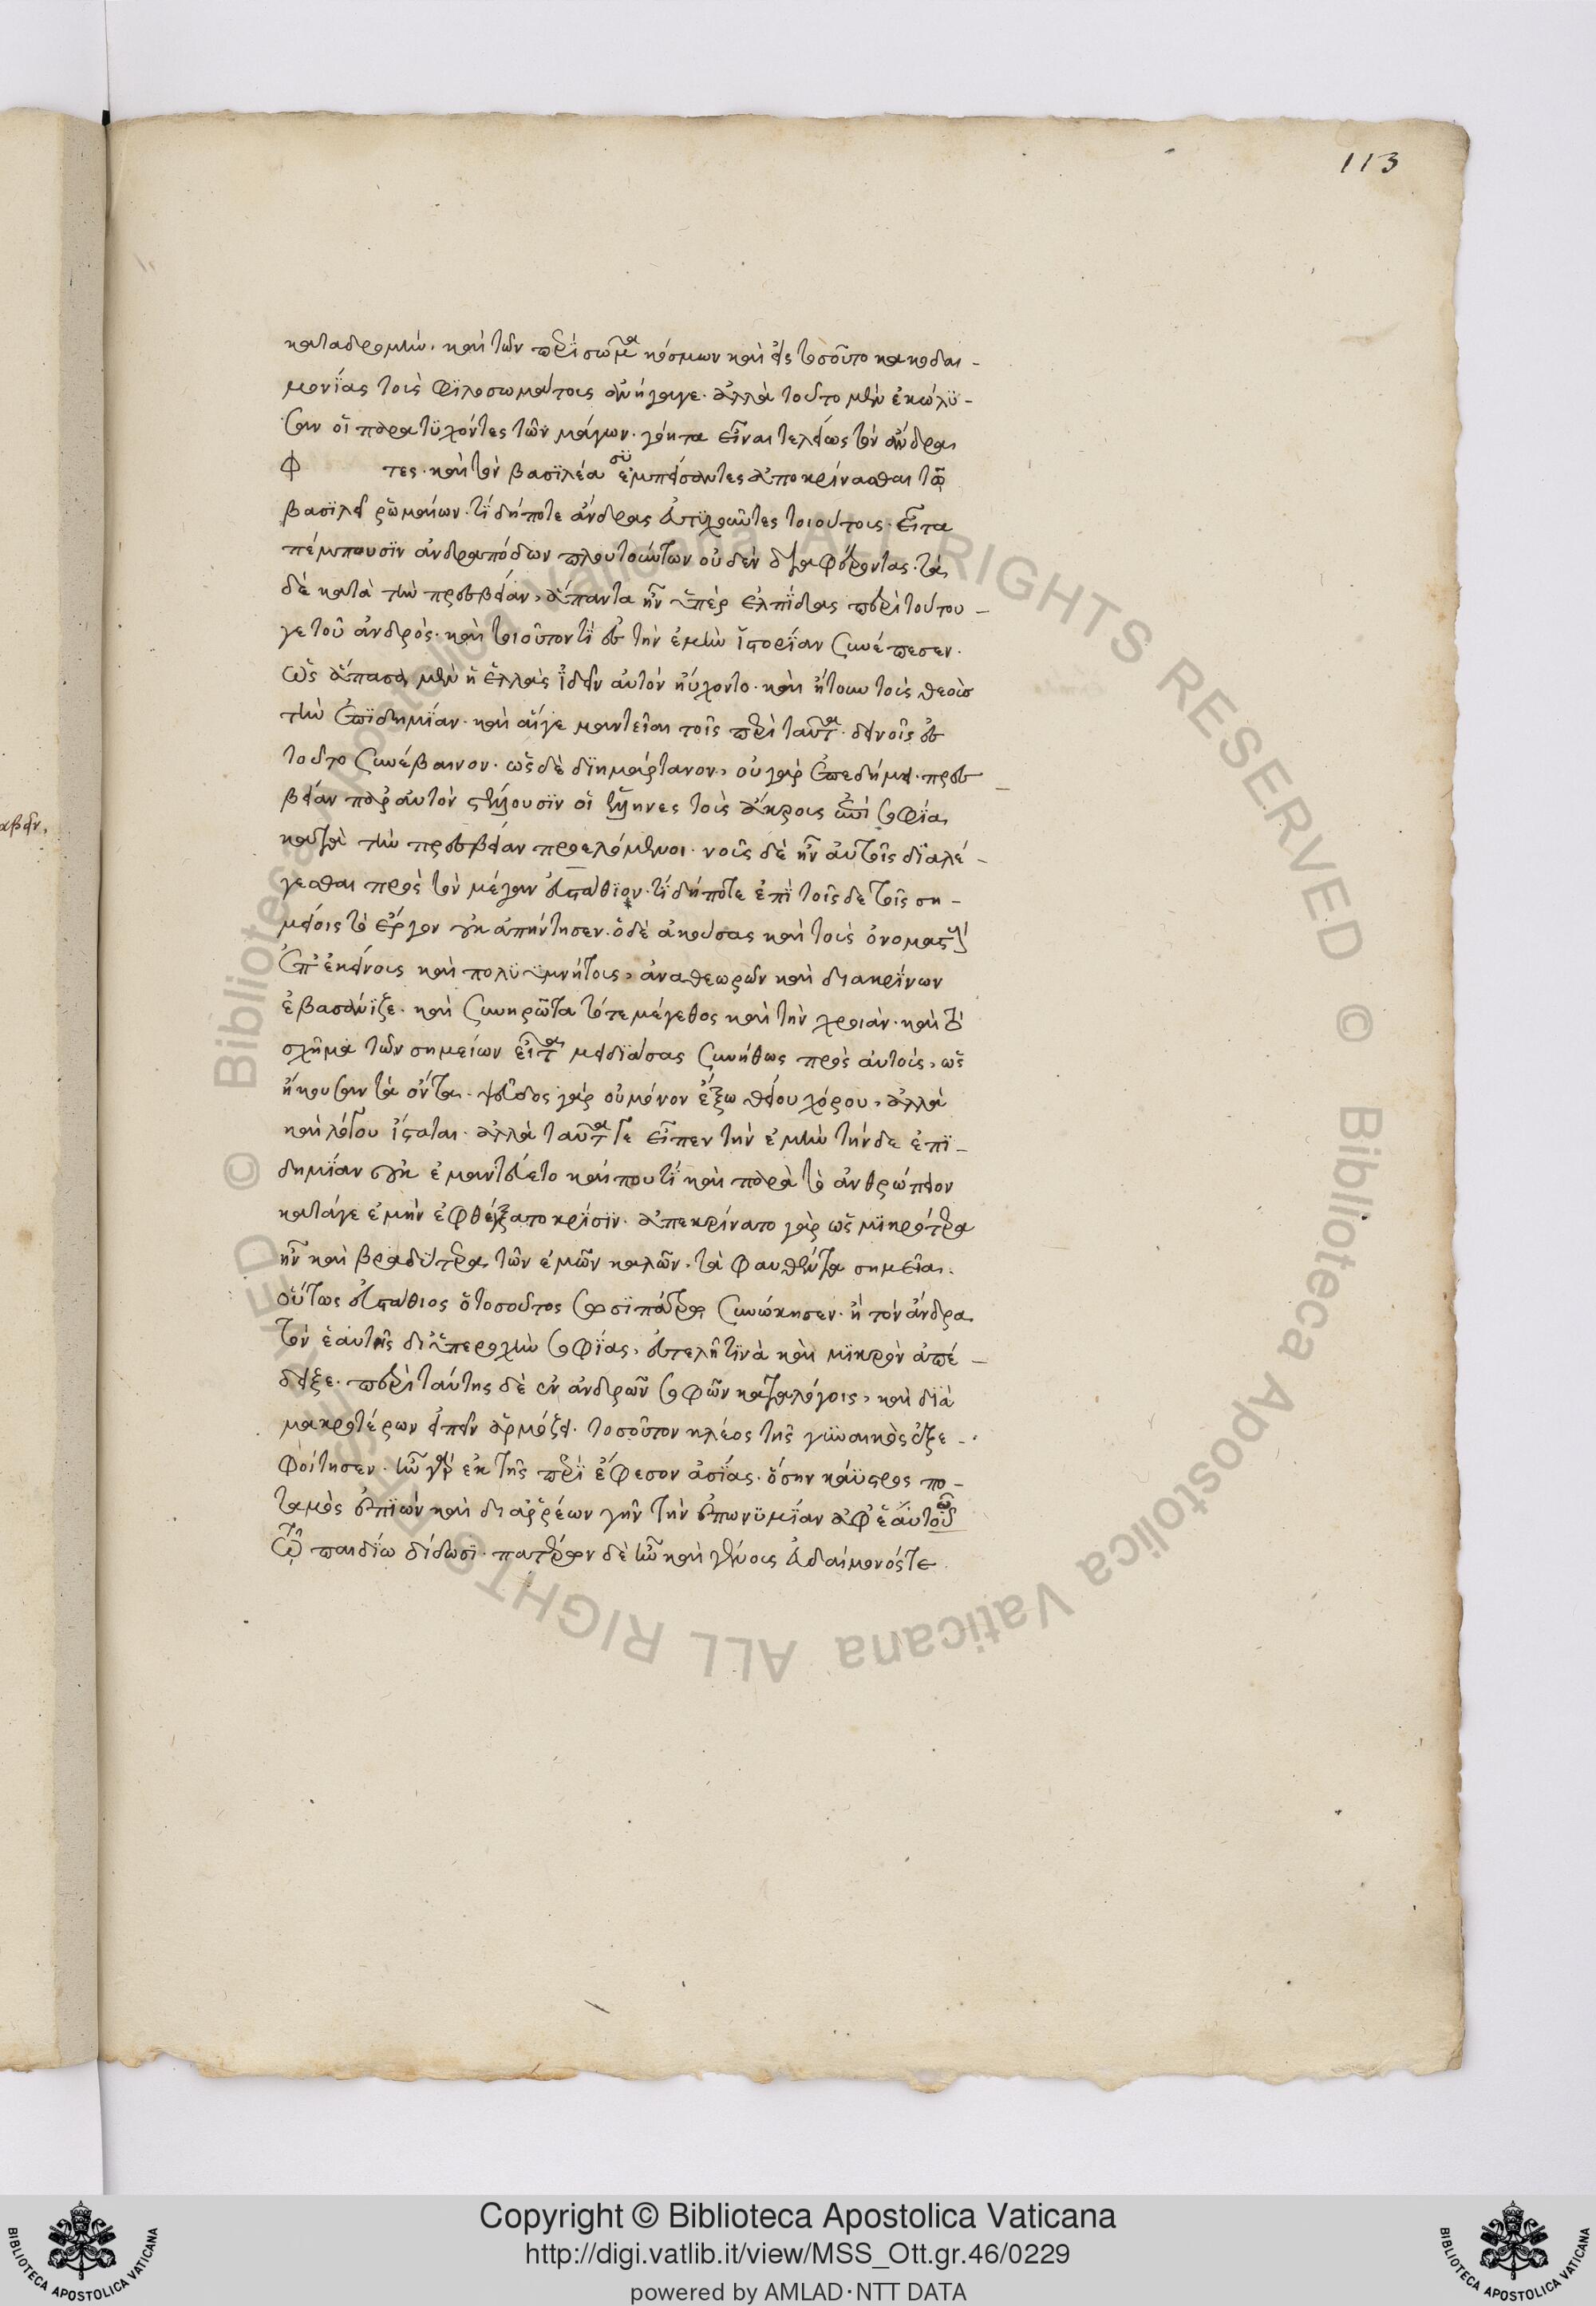 113
καταδρομὴν. καὶ τῶν περὶ σῶμα κόσμων καὶ εἰς τοσοῦτο κακοδαι-
μονΐας τοὺς φϊλοσωμάτους ἀνήγαγε. ἀλλὰ τοῦτο μὲν ἐκώλϋ-
σαν οἱ παρατϋχόντες τῶν μάγων. γόητα εἶναι τελείως τὸν ἄνδρα
φ τες. καὶ τὸν βασϊλέα σϋεμπείσαντες ἀποκρίνασθαι τῷ
βασϊλεῖ ῥωμαίων. τί δήποτε ἄνδρας εὐτϋχοῦντες τοιούτους. εἶτα
πέμπουσϊν ἀνδραπόδων πλουτούντων οὐδὲν διαφέροντας. τὰ
δὲ κατὰ τὴν πρεσβείαν, ἅπαντα ἦν ὑπὲρ ἐλπΐδας περὶ τούτου-
γε τοῦ ἀνδρός. καὶ τοιοῦτον τϊ εἰς τὴν ἐμὴν ἱστορΐαν συνέπεσεν.
ὡς ἅπασα μὲν ἡ ἑλλὰς ἰδεῖν αὐτὸν ηὔχοντο. καὶ ᾔτουν τοὺς θεοὺσ
τὴν ἐπϊδημΐαν. καὶ αἵγε μαντεῖαι τοῖς περὶ ταῦτα δεινοῖς εἰς
τοῦτο συνέβαινον. ὡς δὲ δϊημάρτανον, οὐ γὰρ ἐπεδήμει. πρεσ
βείαν παρ' αὐτὸν στέλλουσϊν οἱ ἕλληνες τοὺς ἄκρους ἐπὶ σοφΐα
κατὰ τὴν πρεσβείαν προελόμενοι. νοῦς δὲ ἦν αὐτοῖς δϊαλέ-
γεσθαι πρὸς τὸν μέγαν εὐστάθϊον. τί δήποτε ἐπὶ τοῖσδε τοῖς ση-
μείοις τὸ ἔργον οὐκ ἀπήντησεν. ὁ δὲ ἀκούσας καὶ τοὺς ὀνομαστοὺς
ἐπ' ἐκείνοις καὶ πολϋϋμνήτους, ἀναθεωρῶν καὶ διακρΐνων
ἐβασάνϊζε. καὶ συνηρῶτα τό τε μέγεθος καὶ τὴν χροιὰν. καὶ τὸ
σχῆμα τῶν σημείων εἶτα μειδϊάσας συνήθως πρὸς αὐτοὺς, ὡς
ἤκουσαν τὰ ὄντα. ψεῦδος γὰρ οὐ μόνον ἔξω θείου χόρου, ἀλλὰ
καὶ λόγου ἵσταται. ἀλλὰ ταῦτά γε εἶπεν τὴν ἐμὴν τήνδε ἐπϊ-
δημΐαν οὐκ ἐμαντεύετο καί που τϊ καὶ παρὰ τὸ ἀνθρώπειον
κατάγε ἐμὴν ἐφθέγξατο κρΐσϊν. ἀπεκρίνατο γὰρ ὡς μϊκρότερα
ἦν καὶ βραδΰτερα τῶν ἐμῶν καλῶν. τὰ φανθέντα σημεῖα.
οὕτως εὐστάθιος ὁ τοσοῦτος σωσϊπάτρᾳ συνώκησεν. ἣ τὸν ἄνδρα
τὸν ἑαυτῆς δι' ὑπεροχὴν σοφΐας, εὐτελῆ τϊνὰ καὶ μϊκρὸν ἀπέ-
δειξε. περὶ ταύτης δὲ ἐν ἀνδρῶν σοφῶν καταλόγοις, καὶ δϊὰ
μακροτέρων εἰπεῖν ἁρμόζει. τοσοῦτον κλέος τῆς γϋναικὸς ἐξε-
φοίτησεν. ἦν γὰρ ἐκ τῆς περὶ ἔφεσον ἀσΐας. ὅσην κάϋστρος πο-
ταμὸς ἐπϊὼν καὶ διαῤῥέων γῆν τὴν ἐπωνϋμΐαν ἀφ' ἑαυτοῦ
τῷ παιδΐω δίδωσϊ. πατέρων δὲ ἦν καὶ γένους εὐδαίμονός τε
αβεῖν,
Copyright © Biblioteca Apostolica Vaticana
http://digi.vatlib.it/view/MSS_Ott.gr.46/0229
powered by AMLAD·NTT DATA